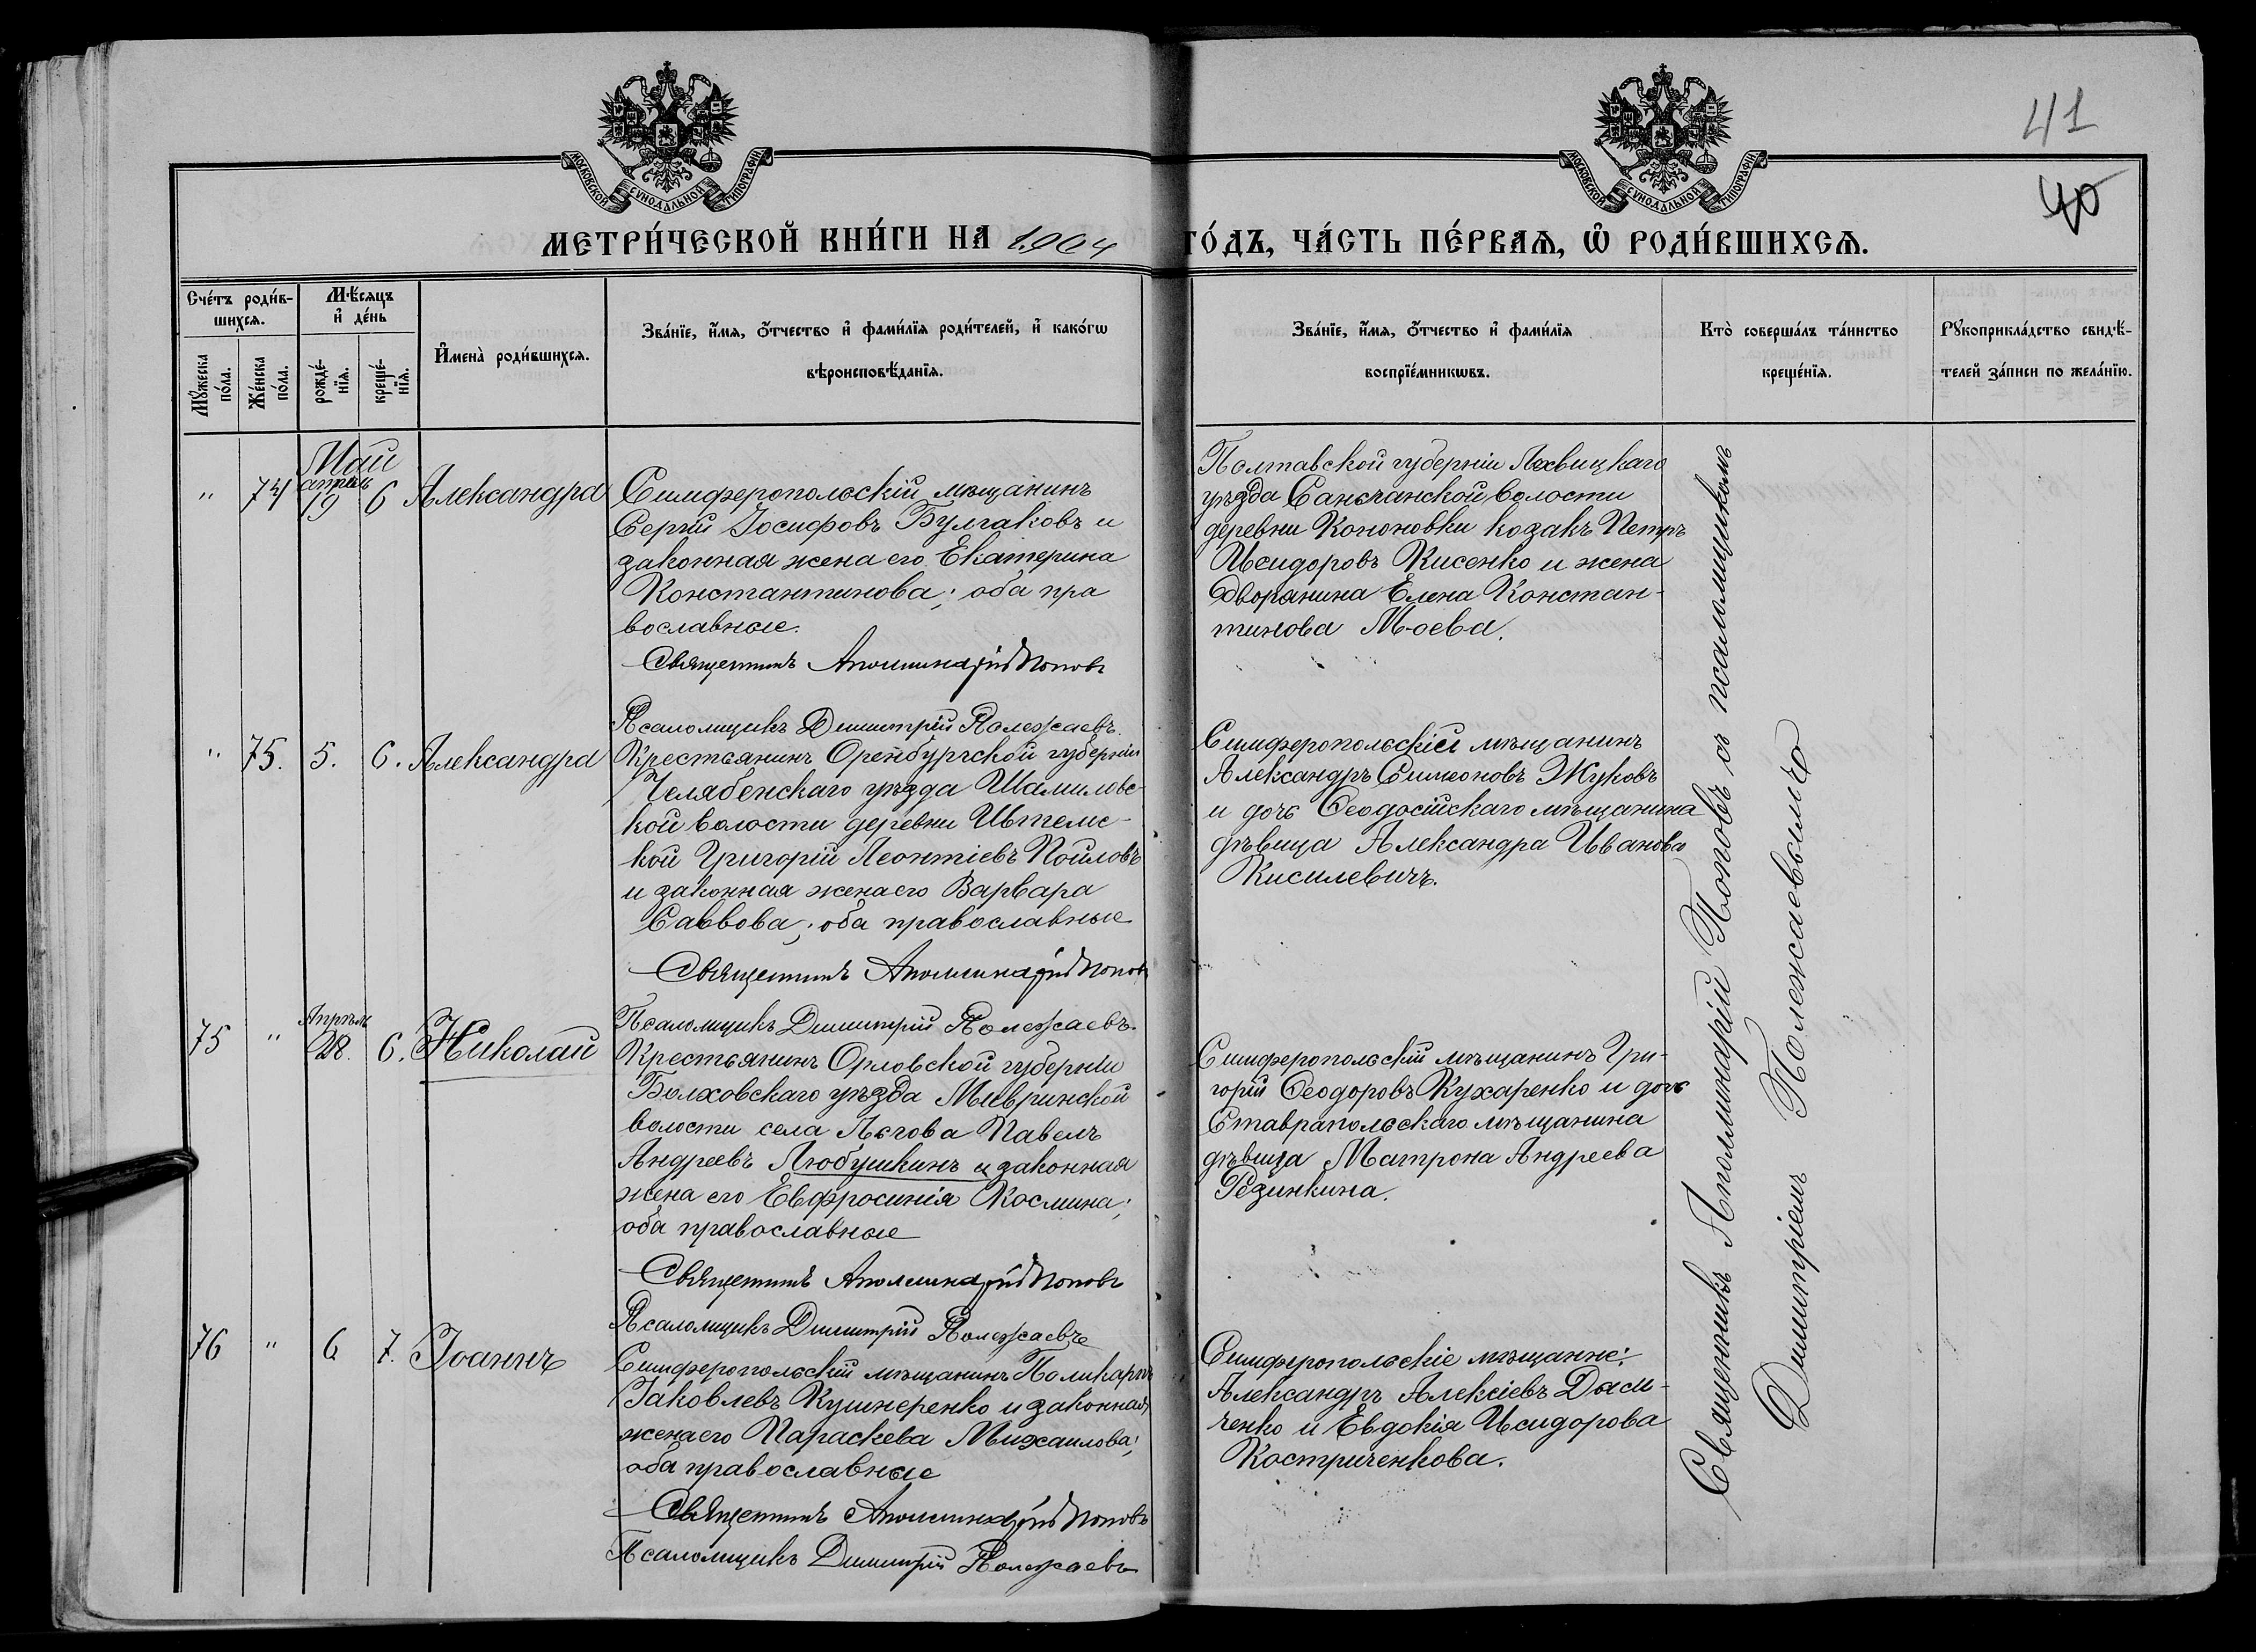 41
40
МОСКОВСКОЙ СѴНОДАЛЬНОЙ ТИПОГРАФІИ
МОСКОВСКОЙ СѴНОДАЛЬНОЙ ТИПОГРАФІИ
МЕТРИ́ЧЕСКОЙ КНИ́ГИ НА 1904 ГО́ДЪ, ЧА́СТЬ ПЕ́РВАѦ, Ѡ҆ РОДИ́ВШИХСѦ.
Сче́тъ роди́в-
шихсѧ.
Мꙋжеска по́ла.
Же́нска по́ла.
Мѣ́сѧцъ
и҆ де́нь
рожде́-
нїѧ.
креще́-
нїѧ.
И҆мена̀ роди́вшихсѧ.
Зва́нїе, и҆́мѧ, ѻ҆́тчество и҆ фами́лїѧ роди́телей, и҆ како́гѡ
вѣроисповѣ́данїѧ.
Зва́нїе, и҆́мѧ, ѻ҆́тчество и҆ фами́лїѧ
воспрїе́мникѡвъ.
Кто̀ соверша́лъ та́инство
креще́нїѧ.
Рꙋкоприкла́дство свидѣ́-
телей за́писи по жела́нїю.
Май
" 74 апрѣль 19 6 Александра
Симферопольскій мѣщанинъ
Сергій Іосифовъ Булгаковъ и
законная жена его Екатерина
Константинова; оба пра
вославные.
Священникъ Аполлинарій Поповъ
Псаломщикъ Димитрій Полежаевъ.
Полтавской губерніи Лохвицкаго
уѣзда Сенчанской волости
деревни Кононовки козакъ Петръ
Исидоровъ Кисенко и жена
дворянина Елена Констан-
тинова Моева.
" 75. 5. 6. Александра
Крестьянинъ Оренбургской губерніи
Челябенскаго уѣзда
кой волости деревни
кой Григорій Леонтіевъ Пойловъ
и законная жена его Варвара
Саввова; оба православные
Священникъ Аполлинарій Поповъ
Псаломщикъ Димитрій Полежаевъ.
Симферопольскій мѣщанинъ
Александръ Симеоновъ Жуковъ
и дочь Ѳеодосійскаго мѣщанина
дѣвица Александра Иванова
Кисилевичъ.
75 " Апрѣль 28. 6. Николай
Крестьянинъ Орловской губерніи
Болховскаго уѣзда
волости села Льгова Павелъ
Андреевъ Любушкинъ и законная
жена его Евфросинія Космина;
оба православные
Священникъ Аполлинарій Поповъ
Псаломщикъ Димитрій Полежаевъ
Симферопольскій мѣщанинъ Гри-
горій Ѳеодоровъ Кухаренко и дочь
Ставрапольскаго мѣщанина
дѣвица Матрона Андреева
Резинкина.
76 " 6 7. Іоаннъ
Симферопольскій мѣщанинъ Поликарпъ
Іаковлевъ Кушнеренко и законная
жена его Параскева Михаилова;
оба православные
Священникъ Аполлинарій Поповъ
Псаломщикъ Димитрій Полежаевъ
Симферопольскіе мѣщанне:
Александръ Алексіевъ
ченко и Евдокія Исидорова
Костриченкова.
Священникъ Аполлинарій Поповъ съ псаломщикомъ
Димитріемъ Полежаевымъ